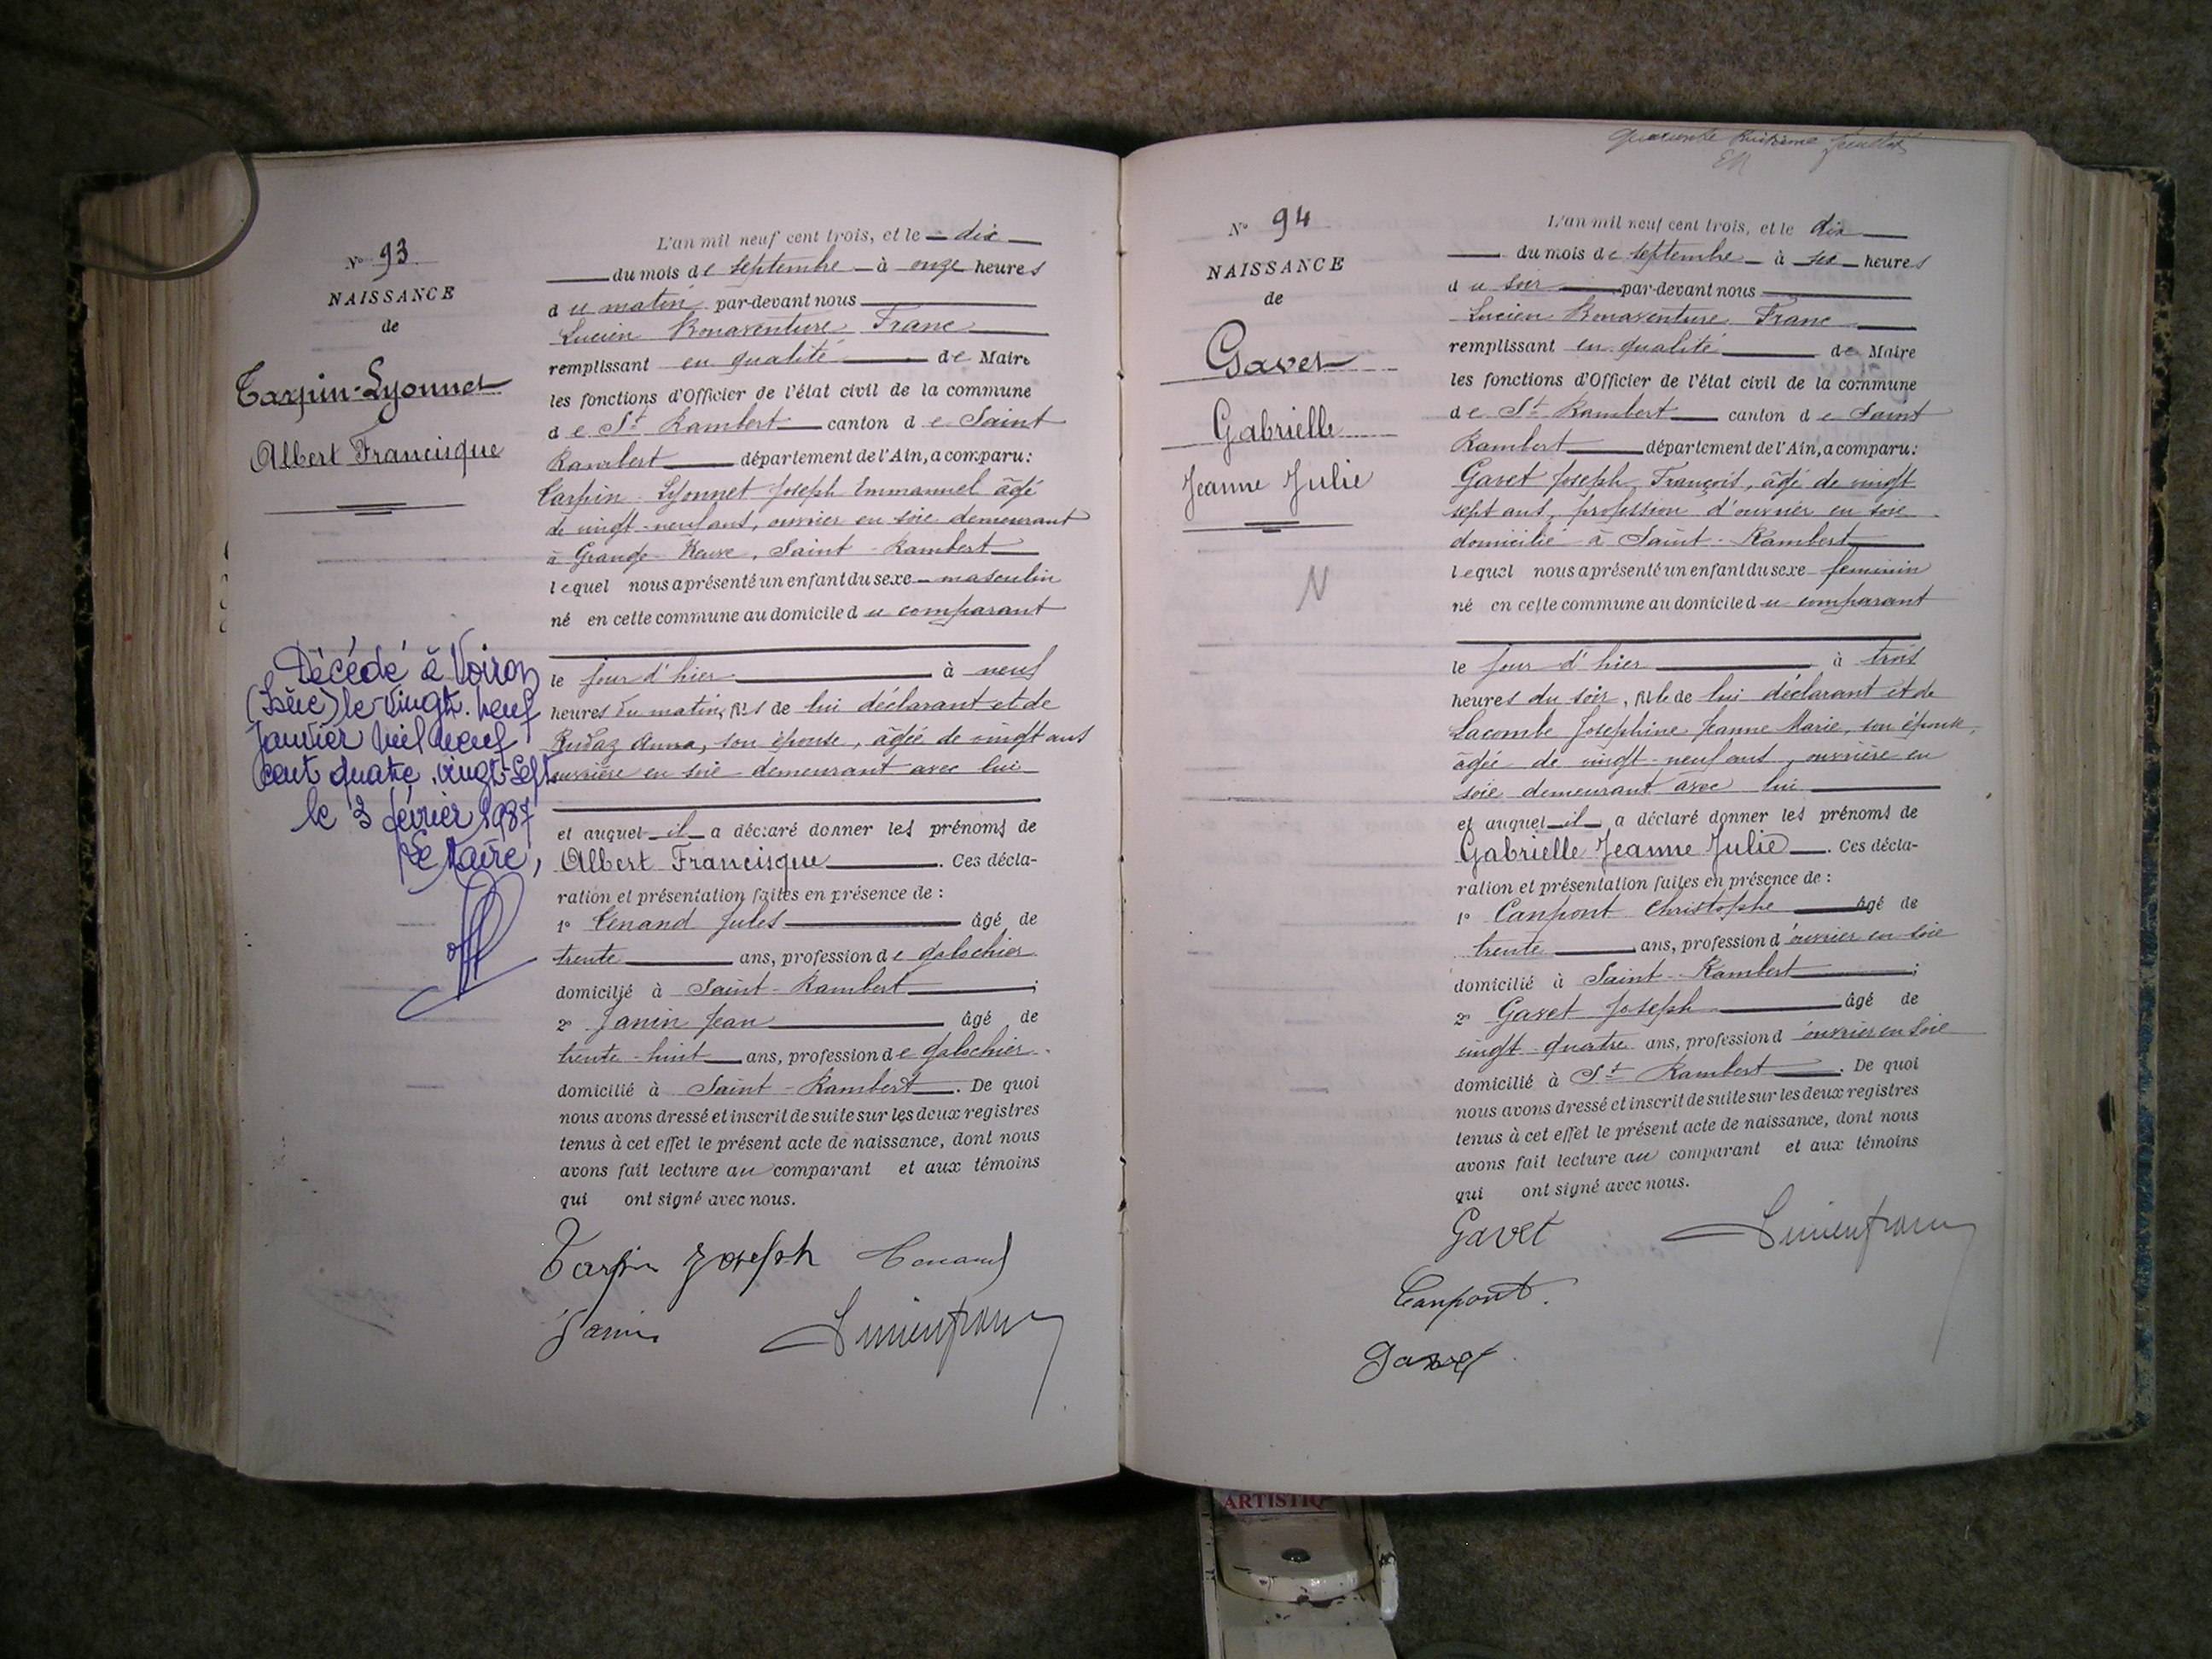 Nº 93
NAISSANCE
de
Tarpin-Lyonnet
Albert Francisque
Décédé à Voiron
(Isère) le vingt neuf
Janvier mil neuf
cent quatre vingt-sept
le 3 février 1987
Le Maire,
L'an mil neuf cent trois, et le dix
du mois de septembre à onze heures
du matin par-devant nous
Lucien Bonaventure Franc
remplissant en qualité de Maire
les fonctions d'Officier de l'état civil de la commune
de St Rambert canton de Saint
Rambert département de l'Ain, a comparu:
Tarpin Lyonnet Joseph Emmanuel âgé
de vingt-neuf ans, ouvrier en soie demeurant
à Grange Neuve, Saint-Rambert
lequel nous a présenté un enfant du sexe masculin
né en cette commune au domicile du comparant
le jour d'hier à neuf
heures du matin, fils de lui déclarant et de
Rudaz Anna, son épouse, âgée de vingt ans
ouvrière en soie demeurant avec lui
et auquel il a déclaré donner les prénoms de
Albert Francisque. Ces décla-
ration et présentation faites en présence de :
1º Tenand Jules âgé de
trente ans, profession de galochier
domicilié à Saint-Rambert ;
2º Janin Jean âgé de
trente-huit ans, profession de galochier
domicilié à Saint-Rambert. De quoi
nous avons dressé et inscrit de suite sur les deux registres
tenus à cet effet le présent acte de naissance, dont nous
avons fait lecture au comparant et aux témoins
qui ont signé avec nous.
Tarpin Joseph Tenand
Janin Lucien franc
quarante huitième feuillet
Nº 94
NAISSANCE
de
Gavet
Gabrielle
Jeanne Julie
N
L'an mil neuf cent trois, et le dix
du mois de septembre à six heures
du soir par-devant nous
Lucien Bonaventure Franc
remplissant en qualité de Maire
les fonctions d'Officier de l'état civil de la commune
de St Rambert canton de Saint
Rambert département de l'Ain, a comparu:
Gavet Joseph François, âgé de vingt
sept ans, profession d'ouvrier en soie
domicilié à Saint-Rambert
lequel nous a présenté un enfant du sexe féminin
né en cette commune au domicile du comparant
le jour d'hier à trois
heures du soir, fille de lui déclarant et de
Lacombe Joséphine Jeanne Marie, son épouse,
âgée de vingt-neuf ans, ouvrière en
soie demeurant avec lui
et auquel il a déclaré donner les prénoms de
Gabrielle Jeanne Julie. Ces décla-
ration et présentation faites en présence de :
1º Canpont Christophe âgé de
trente ans, profession d'ouvrier en soie
domicilié à Saint-Rambert ;
2º Gavet Joseph âgé de
vingt-quatre ans, profession d'ouvrier en soie
domicilié à St Rambert. De quoi
nous avons dressé et inscrit de suite sur les deux registres
tenus à cet effet le présent acte de naissance, dont nous
avons fait lecture au comparant et aux témoins
qui ont signé avec nous.
Gavet Lucien franc
Canpont.
Gavet
ARTISTIQ